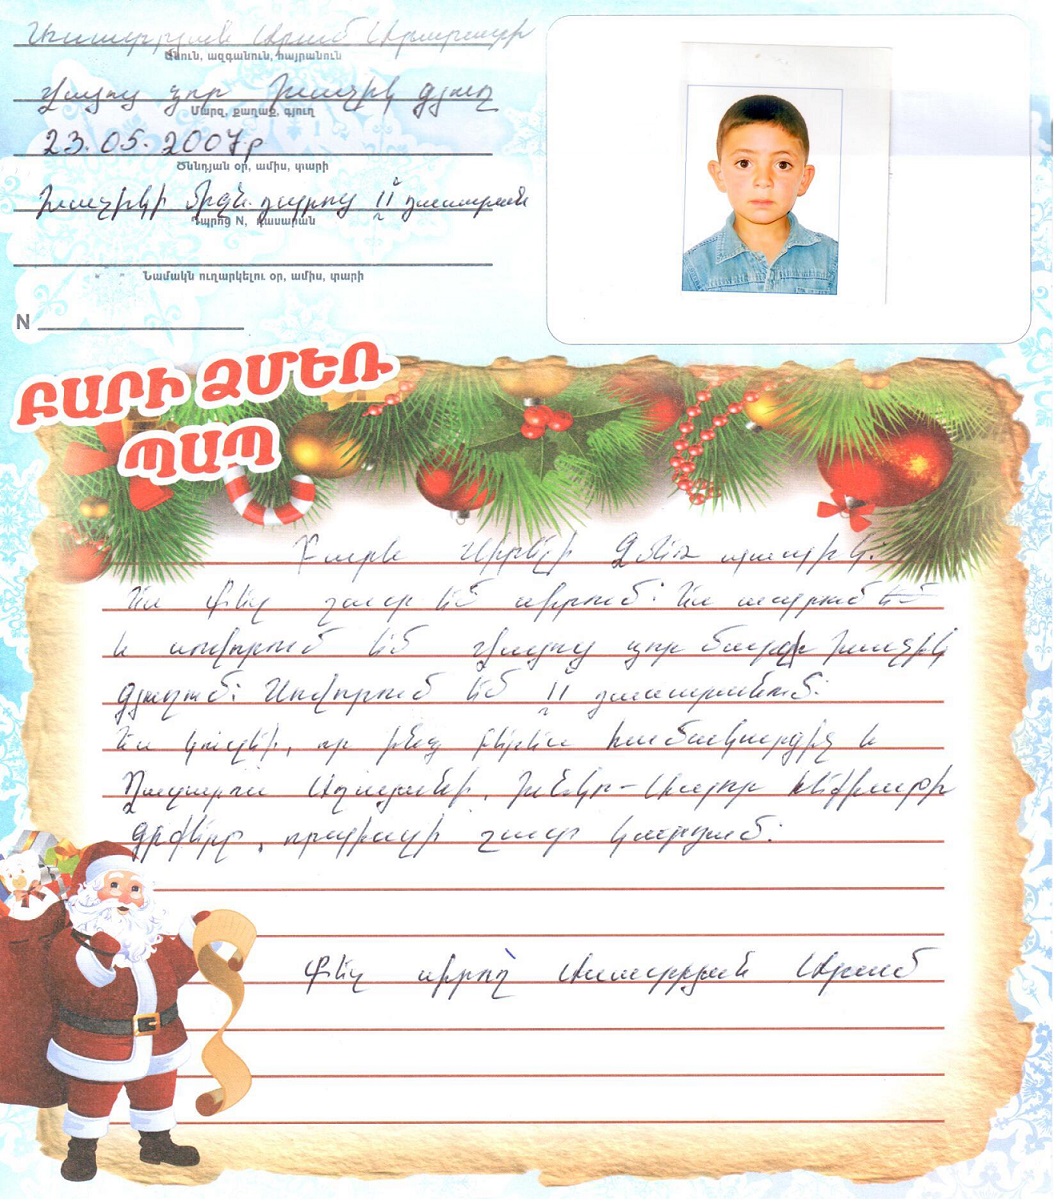 Ասատրյան Արամ Արարատի
Անուն, ազգանուն, հայրանուն
Վայոց ձոր Խաչիկ գյուղ
Մարզ, քաղաք, գյուղ
23.05.2007թ
Ծննդյան օր, ամիս, տարի
Խաչիկի միջն. դպրոց II դասարան
Դպրոց N, դասարան
Նամակն ուղարկելու օր, ամիս, տարի
N
ԲԱՐԻ ՁՄԵՌ
ՊԱՊ
Բարև Սիրելի Ձմեռ պապիկ:
Ես քեզ շատ եմ սիրում: Ես ապրում եմ
և սովորում եմ Վայոց ձոր մարզի Խաչիկ
գյուղում: Սովորում եմ II դասարանում:
Ես կուզեի, որ ինձ բերես համակարգիչ և
Ղազարոս Աղայանի, Խնկո-Ապոր հեքիաթի
գրքերը, որպիսզի շատ կարդամ:
Քեզ սիրող՝ Ասատրյան Արամ